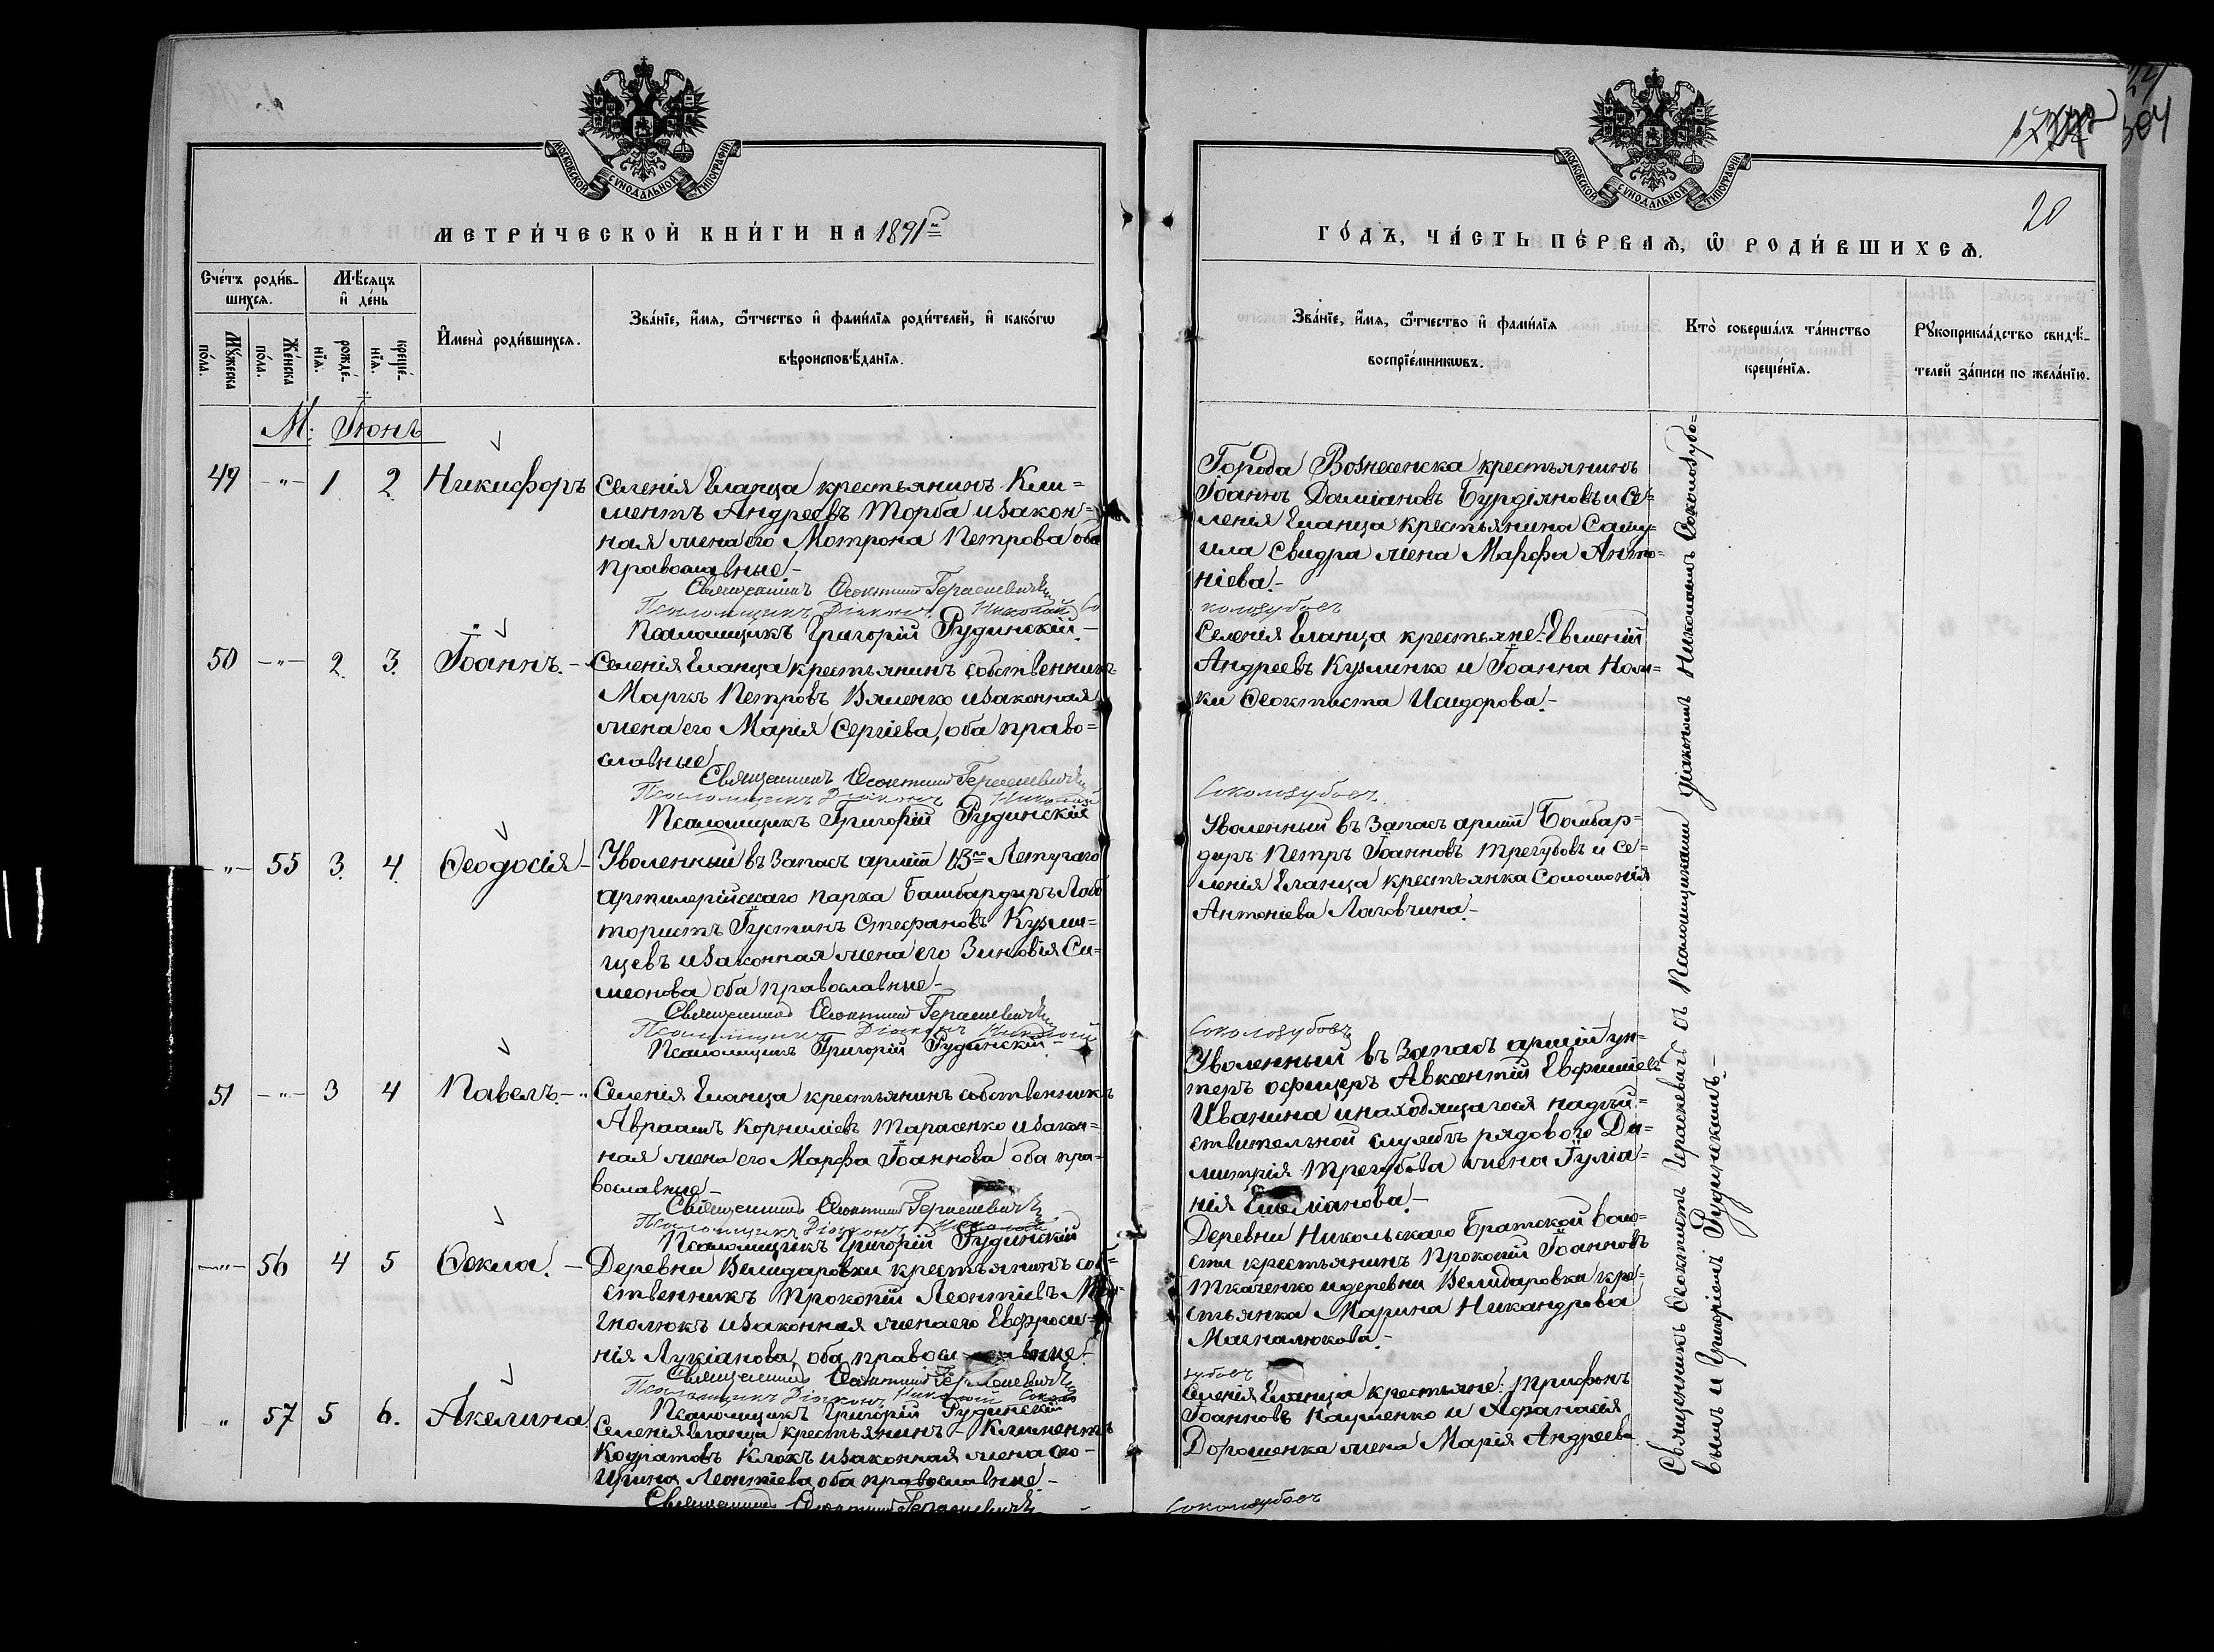 МОСКОВСКОЙ СѴНОДАЛЬНОЙ ТИПОГРАФІИ
МЕТРИ́ЧЕСКОЙ КНИ́ГИ НА 1891й
Сче́тъ роди́в-
шихсѧ.
Мꙋ́жеска по́ла.
Же́нска по́ла.
Мѣ́сѧцъ
и҆ де́нь
рожде́-
нїѧ:
креще́-
нїѧ.
И҆мена̀ роди́вшихсѧ.
Зва́нїе, и҆́мѧ, ѻ҆́тчество и҆ фами́лїѧ роди́телей, и҆ како́гѡ
вѣроисповѣ́данїѧ.
М. Іюнь
49 -"- 1 2 Никифоръ
Селенія Еланца крестьянинъ Кли=
ментъ Андреевъ Торба и закон=
ная жена его Мотрона Петрова оба
православные.-
Священникъ Ѳеоктистъ Герасевичъ
Псаломщикъ Діаконъ Николай Со
Псаломщикъ Григорій Рудинскій.-
50 -"- 2. 3. Іоаннъ.-
Селенія Еланца крестьянинъ собственникъ
Маркъ Петровъ Вяленко и законная
жена его Марія Сергіева, оба право=
славные
Священникъ Ѳеоктистъ Герасевичъ
Псаломщикъ Діаконъ Николай
Псаломщикъ Григорій Рудинскій
-"- 55 3. 4. Ѳеодосія-
Уволенный въ запасъ арміи 13го Летучаго
артилерійскаго парка Бомбардиръ Лабо
тористъ Іустинъ Стефановъ Кузми=
щевъ и законная жена его Зиновія Си=
меонова оба православные-
Священникъ Ѳеоктистъ Герасевичъ
Псаломщикъ Діаконъ Николай
Псаломщикъ Григорій Рудинскій-
51 -"- 3 4 Павелъ.-
Селенія Еланца крестьянинъ собственникъ
Авраамъ Корниліевъ Тарасенко и закон=
ная жена его Марфа Іоаннова оба пра-
вославные-
Священникъ Ѳеоктистъ Герасевичъ
Псаломщикъ Діаконъ Николай
Псаломщикъ Григорій Рудинскій
-"- 56 4 5 Ѳекла.-
Деревни Велидаровки крестьянинъ соб=
ственникъ Прокопій Леонтіевъ
гнолюкъ и законная жена его Евфроси-
нія Лукіанова, оба православные.-
Священникъ Ѳеоктистъ Герасевичъ
Псаломщикъ Діаконъ Николай Соколо
Псаломщикъ Григорій Рудинскій
" 57 5 6. Акелина
Селенія Еланца крестьянинъ - Климентъ
Кодратовъ Клокъ и законная жена его-
Ирина Леонтіева оба православные.-
Священникъ Ѳеоктистъ Герасевичъ
МОСКОВСКОЙ СѴНОДАЛЬНОЙ ТИПОГРАФІИ
20
ГО́ДЪ, ЧА́СТЬ ПЕ́РВАѦ, Ѡ҆ РОДИ́ВШИХСѦ.
Зва́нїе, и҆́мѧ, ѻ҆́тчество и҆ фами́лїѧ
воспрїе́мникѡвъ.
Кто̀ соверша́лъ та́инство
креще́нїѧ.
Рꙋкоприкла́дство свидѣ́-
телей за́писи по жела́нїю.
Города Вознесенска крестьянинъ
Іоаннъ Даміановъ Бурдіяновъ и се=
ленія Еланца крестьянина Саму=
ила Свидра жена Марфа Анто=
ніева.-
колозубовъ
Селенія Еланца крестьяне: Евменій
Андреевъ Кузминко и Іоанна Ном=
ки Ѳеоктиста Исидорова.-
Соколозубовъ.
Уволенный въ запасъ арміи Бомбар=
диръ Петръ Іоанновъ Трегубовъ и се=
ленія Еланца крестьянка Соломонія
Антоніева Лаговчина.-
Соколозубовъ
Уволенный въ запасъ арміи ун=
теръ офицеръ Авксентій Евфиміевъ
Иванина и находящагося на дѣй=
ствительной службѣ рядового Ди=
митрія Трегубова жена Іуліа=
нія Емеліанова.-
Деревни Никольскаго Братской воло=
сти крестьянинъ Прокопій Іоанновъ
Ткаченко и деревни Велидаровки кре=
стьянка Марина Никандрова
Магналюкова.-
зубовъ
Селенія Еланца крестьяне: Трифонъ
Іоанновъ Науменко и Афанасія
Дорошенка жена Марія Андреева
Соколозубовъ
Священникъ Ѳеоктистъ Герасевичъ съ Псаломщиками діакономъ Николаемъ Соколозубо=
вымъ и Григоріемъ Рудинскимъ.-